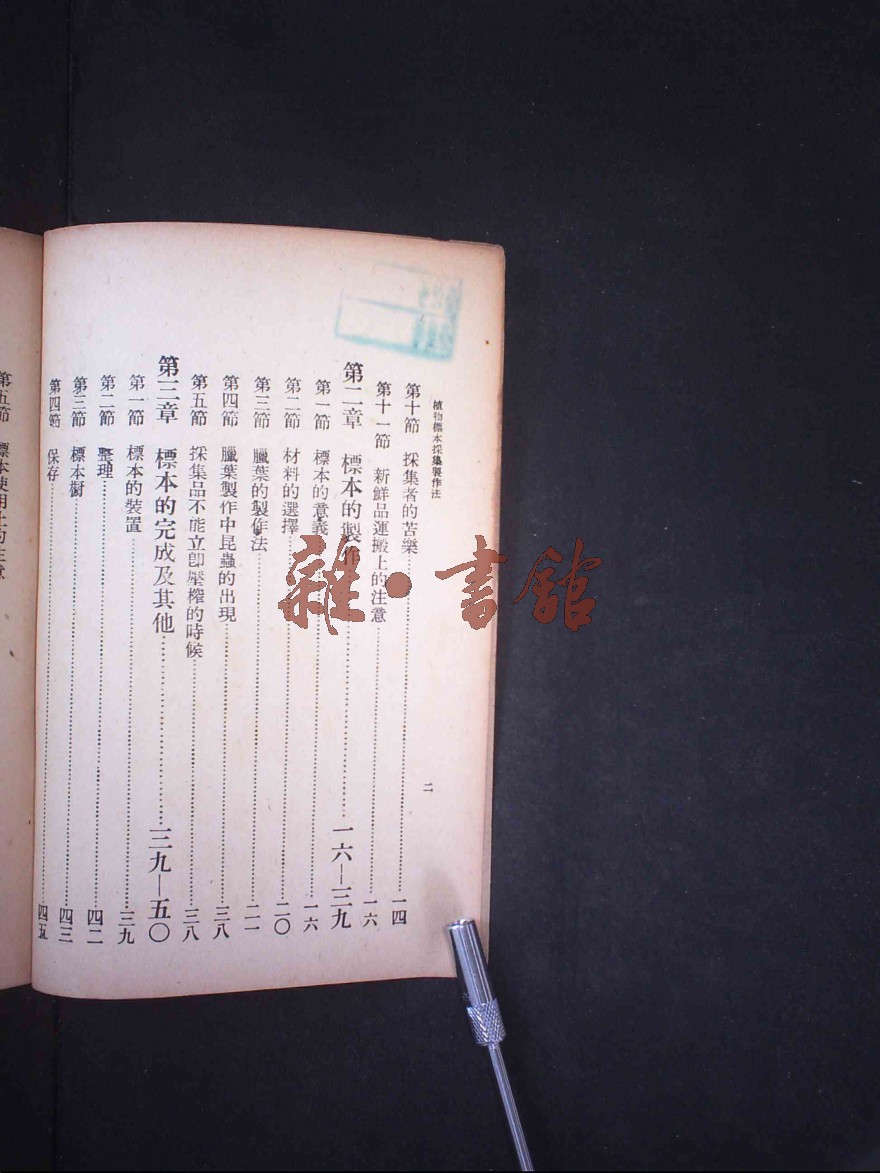 植物標本採集製作法
二
第十節 採集者的苦樂……一四
第十一節 新鮮品運搬上的注意……一六
第二章 標本的製作……一六—三九
第一節 標本的意義……一六
第二節 材料的選擇……二〇
第三節 臘葉的製作法……二一
第四節 臘葉製作中昆蟲的出現……三八
第五節 採集品不能立卽壓榨的時候……三八
第三章 標本的完成及其他……三九—五〇
第一節 標本的裝置……三九
第二節 整理……四二
第三節 標本櫥……四三
第四節 保存……四五
第五節 標本使用上的注意
雜·書館